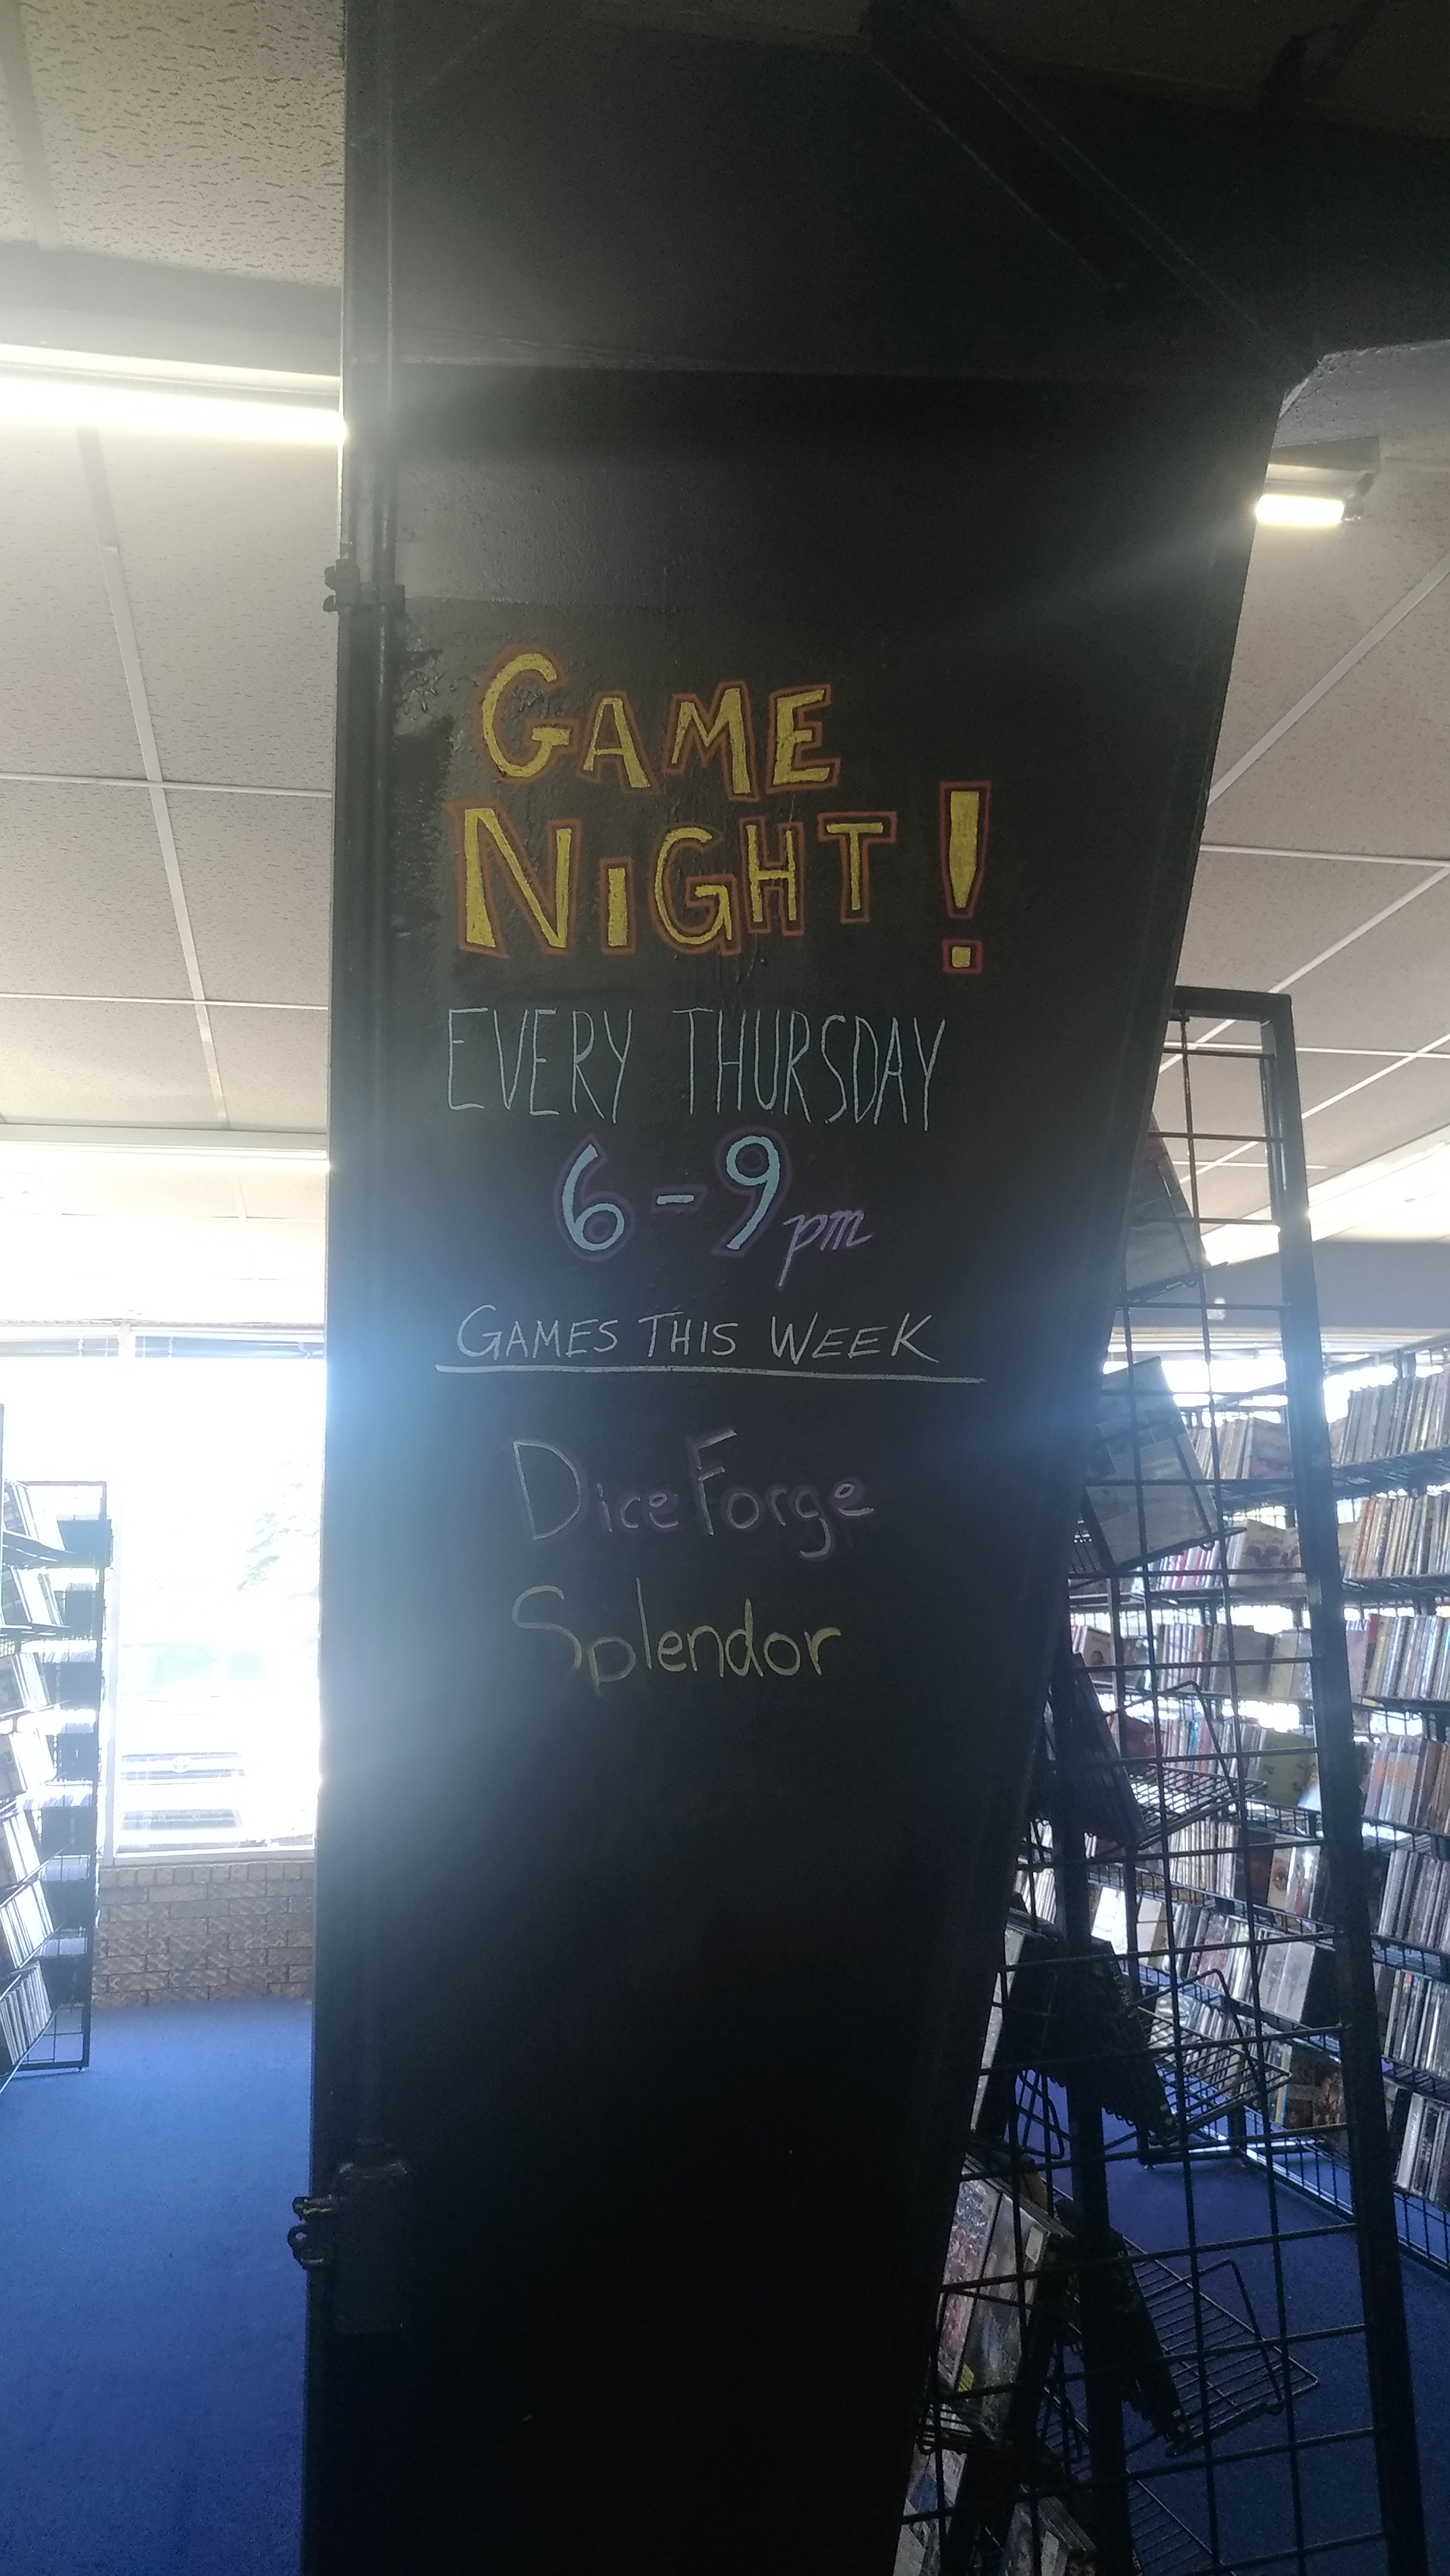 GAME
NiGHT!
EVERY THURSDAY
6-9pm
GAMES THIS WEEK
Dice Forge
Splendor